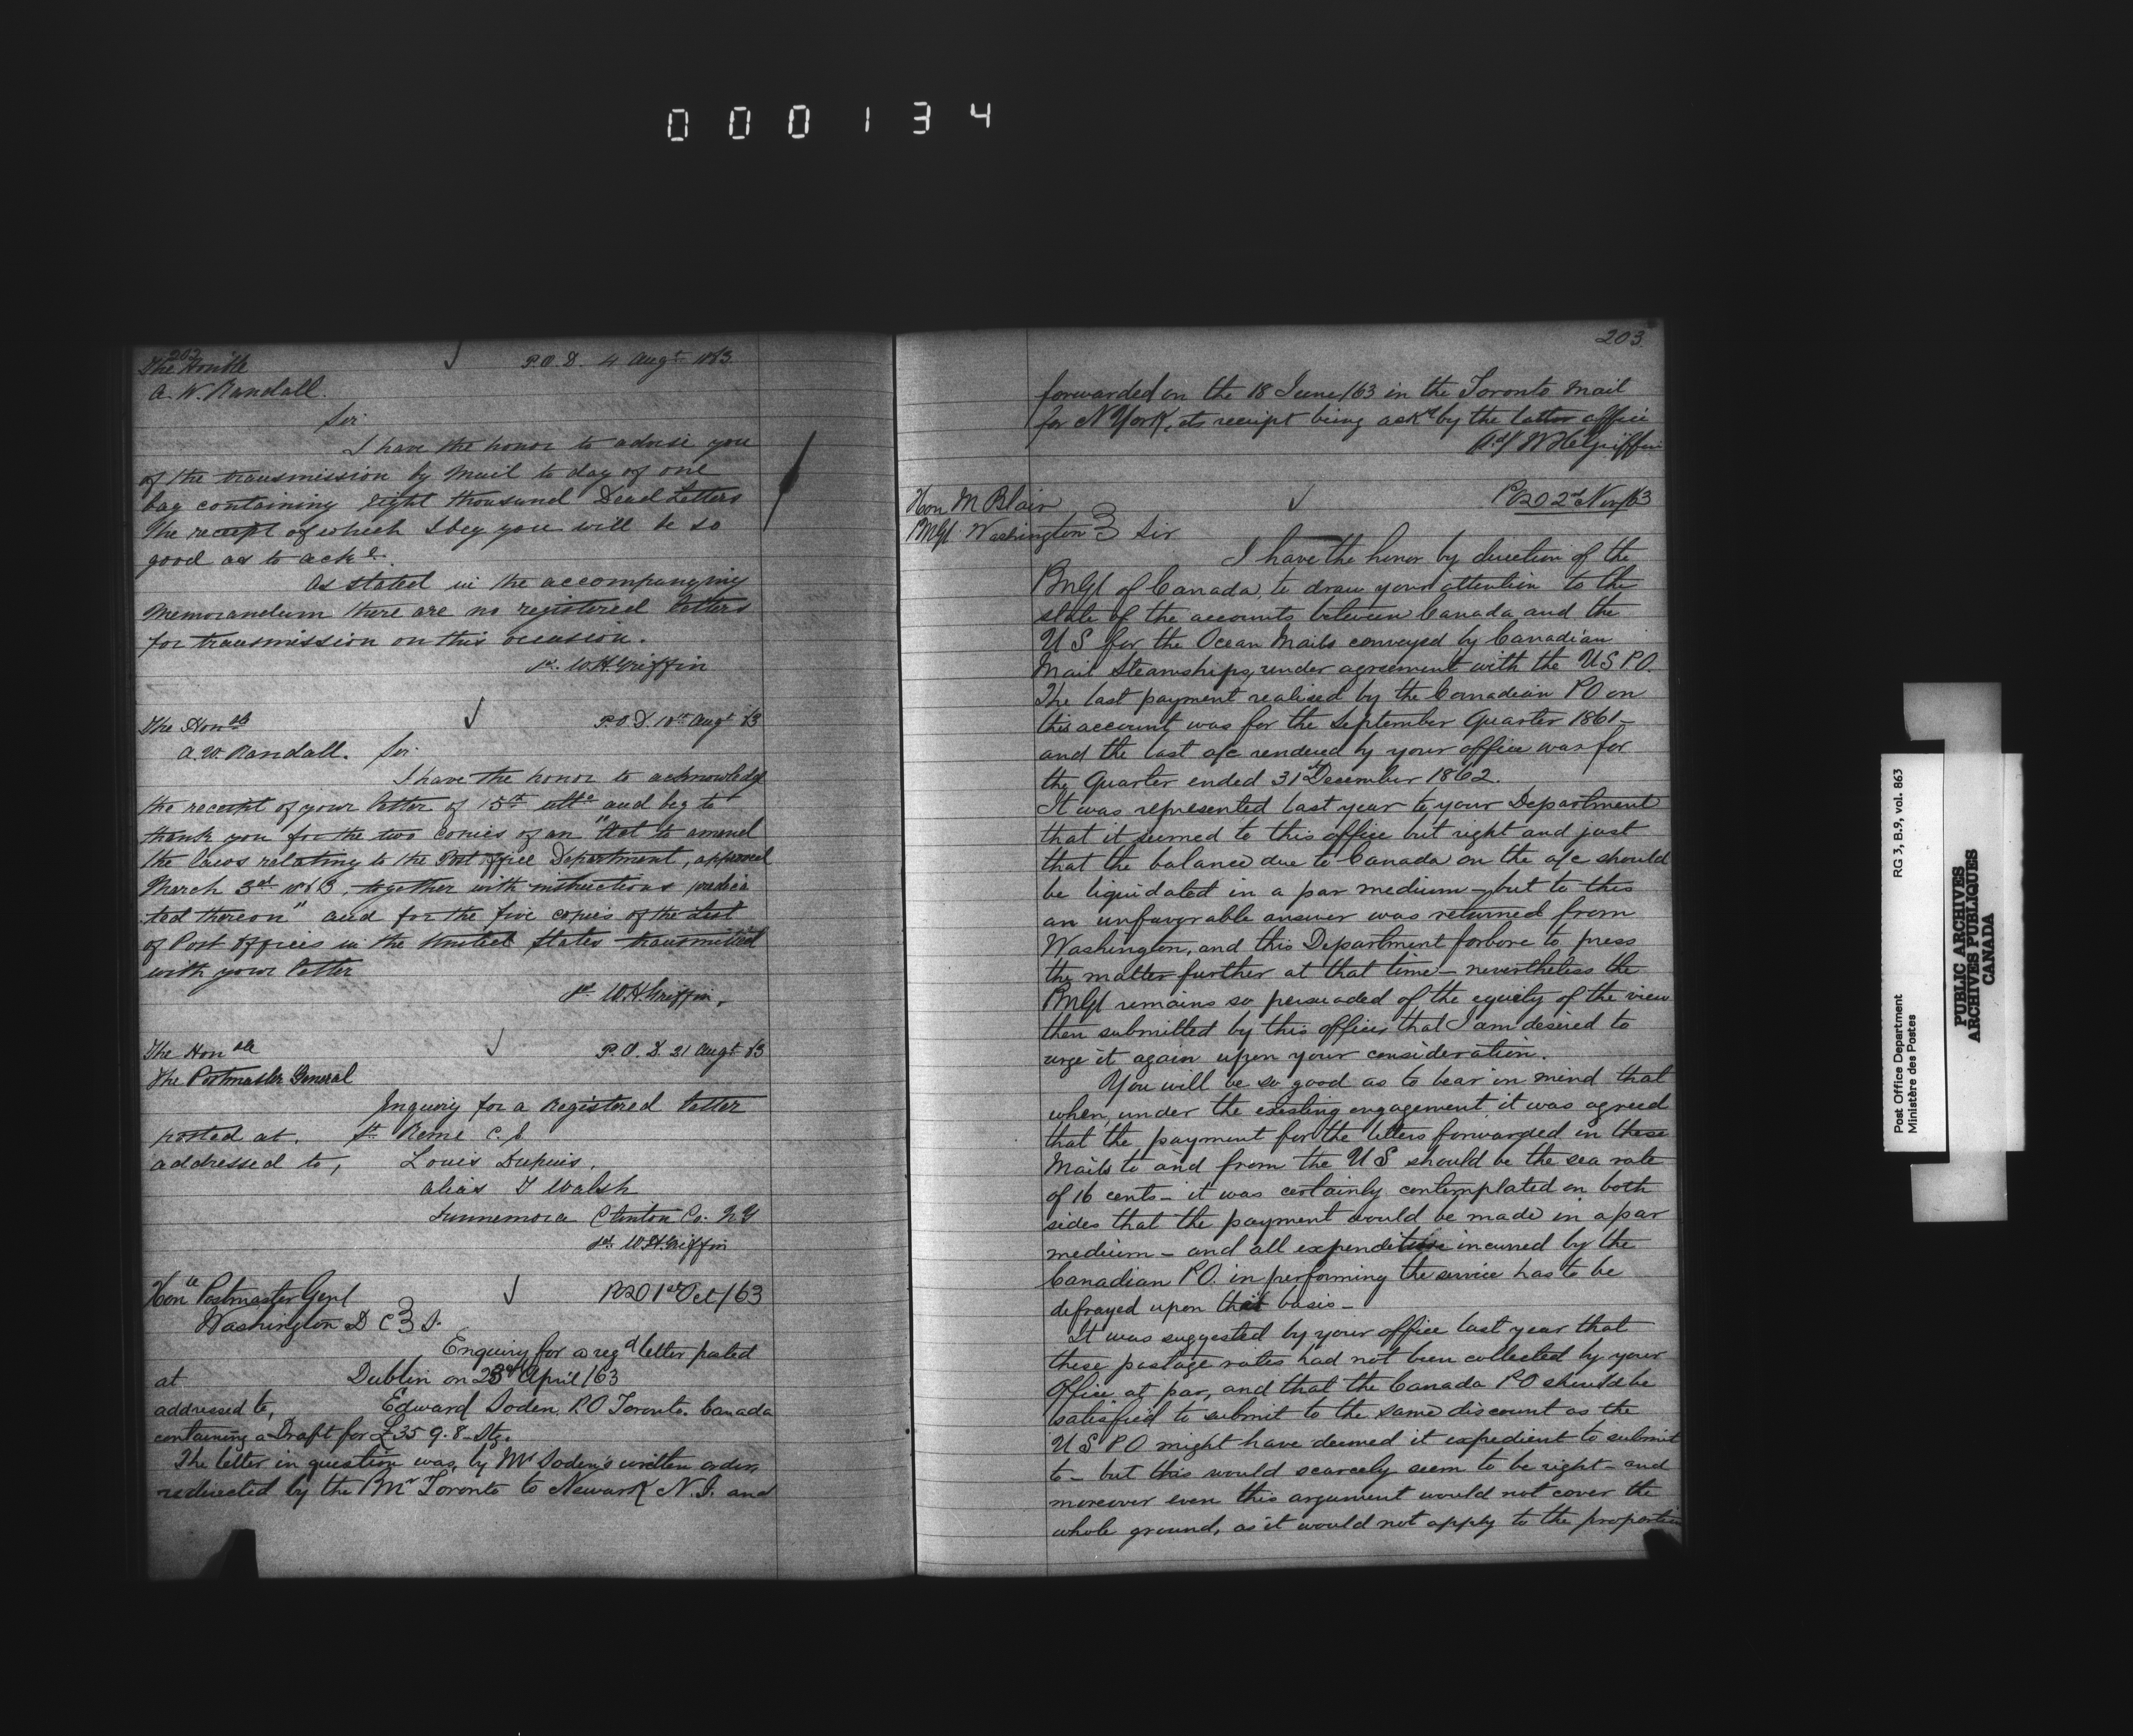 000134
202
The Honble P.O.D. 4 Augt 1863.
A. W. Randall.
Sir
I have the honor to advise you
of the transmission by Mail to day of one
bag containing eight thousand Dead Letters
The receipt of which I beg you will be so
good as to acke.
As stated in the accompanying
Memorandum there are no registered letters
for transmission on this occasion.
sd. W.H. Griffin
The Honble P.O.D. 10th Augt 63
A. W. Randall. Sir.
I have the honor to acknowledge
the receipt of your letter of 15th ulto and beg to
thank you for the two copies of an "Act to amend
the laws relating to the Post Office Department, approved
March 3rd 1863, together with instructions
ted thereon" and for the five copies of the List
of Post Offices in the United States transmitted
with your letter
sd. W.H. Griffin.
The Honble P.O.D. 21 Augt 63
The Postmaster General
Inquiry for a Registered letter
posted at. St. Remi C.E
addressed to, Louis Dupuis.
alias T Walsh
Dunnemora Clinton Co. N.Y
sd. W.H. Griffin
Honle Postmaster Genl POD 1st Oct/63
Washington D C S.
Enquiry for a regd letter posted
at Dublin on 23rd April/63
addressed to, Edward Soden P.O Toronto. Canada
containing a Draft for £35 9. 8 Stg.
The letter in question was, by Mr Soden's written order,
redirected by the PMr Toronto to Newark N.J. and
203
forwarded on the 18 June/63 in the Toronto Mail
for N York, its receipt being ackd by the latter office
sd/ W H Griffin
Hon M Blair POD 2nd Nov/63
PMGl Washington Sir
I have the honor by direction of the
PMGl of Canada, to draw your attention to the
state of the accounts between Canada and the
U S for the Ocean Mails conveyed by Canadian
Mail Steamships, under agreement with the U S P.O.
The last payment realised by the Canadian PO on
this account was for the September Quarter 1861 —
and the last a/c rendered by your office was for
the Quarter ended 31st December 1862.
It was represented last year to your Department
that it seemed to this office but right and just
that the balance due to Canada on the a/c should
be liquidated in a par medium — but to this
an unfavorable answer was returned from
Washington, and this Department forbore to press
the matter further at that time — nevertheless the
PMGl remains so persuaded of the equity of the view
then submitted by this office that I am desired to
urge it again upon your consideration.
You will be so good as to bear in mind that
when, under the existing engagement, it was agreed
that the payment for the letters forwarded in these
Mails to and from the U S should be the sea rate
of 16 cents — it was certainly contemplated on both
sides that the payment would be made in a par
medium — and all expenditure incurred by the
Canadian P.O. in performing the service has to be
defrayed upon that basis —
It was suggested by your office last year that
these postage rates had not been collected by your
Office at par, and that the Canada PO should be
satisfied to submit to the same discount as the
U S P O might have deemed it expedient to submit
to — but this would scarcely seem to be right — and
moreover even this argument would not cover the
whole ground, as it would not apply to the proportion
Post Office Department RG 3, B.9, vol. 863
Ministère des Postes
PUBLIC ARCHIVES
ARCHIVES PUBLIQUES
CANADA